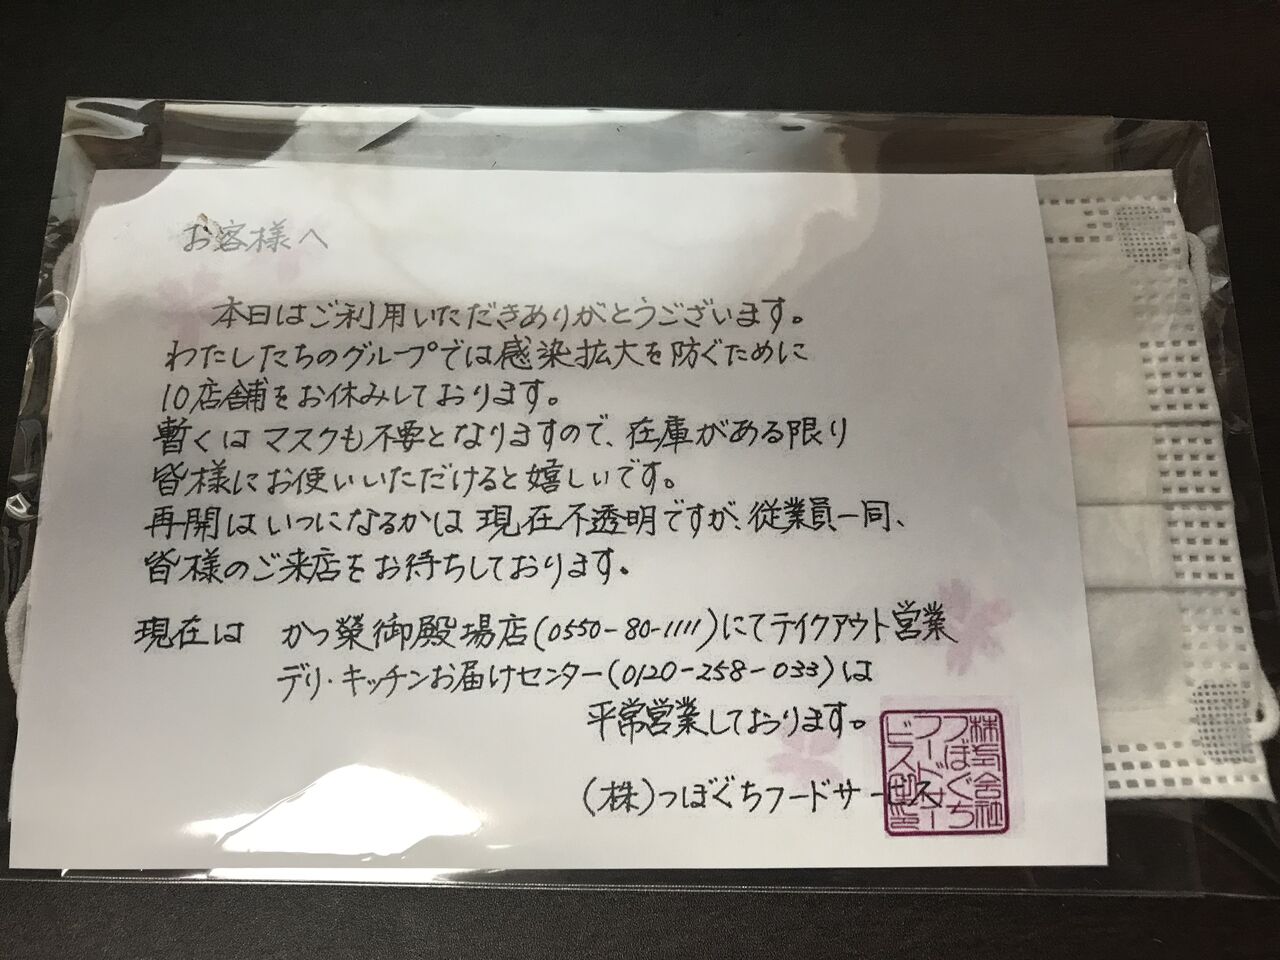 お客様へ
本日はご利用いただきありがとうございます。
わたしたちのグループでは感染拡大を防ぐために
10店舗をお休みしております。
暫くはマスクも不要となりますので、在庫がある限り
皆様にお使いいただけると嬉しいです。
再開はいつになるかは現在不透明ですが、従業員一同、
皆様のご来店をお待ちしております。
現在は かつ榮御殿場店(0550-80-1111)にてテイクアウト営業
デリ・キッチンお届けセンター(0120-258-033)は
平常営業しております。
(株)つぼぐちフードサービス
株式会社
つぼぐち
フードサー
ビス